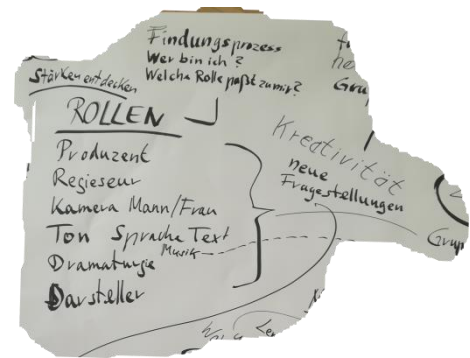 Findungsprozess
Wer bin ich?
Welche Rolle paßt zu mir?
Stärken entdecken
ROLLEN
Produzent
Regieseur
Kamera Mann/Frau
Ton Sprache Text
Musik
Dramaturgie
Darsteller
Kreativität
neue
Fragestellungen